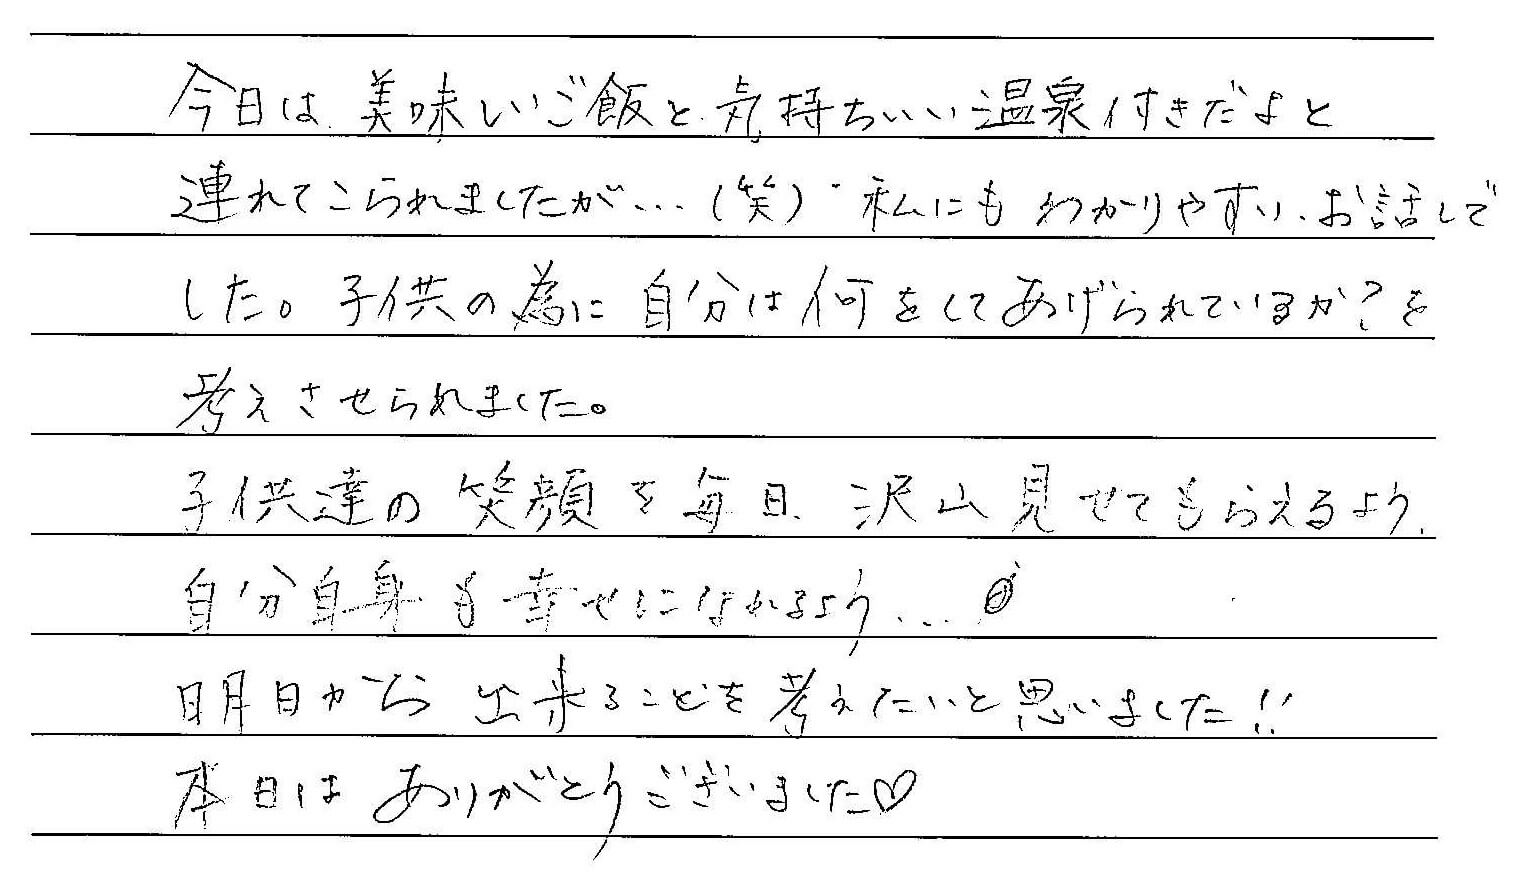 今日は、美味しいご飯と、気持ちいい温泉付きだよと
連れてこられましたが…(笑)・私にもわかりやすい、お話しで
した。子供の為に自分は何をしてあげられているか?を
考えさせられました。
子供達の笑顔を毎日、沢山見せてもらえるよう、
自分自身も幸せになれるよう…
明日から出来ることを考えたいと思いました!!
本日はありがとうございました♡